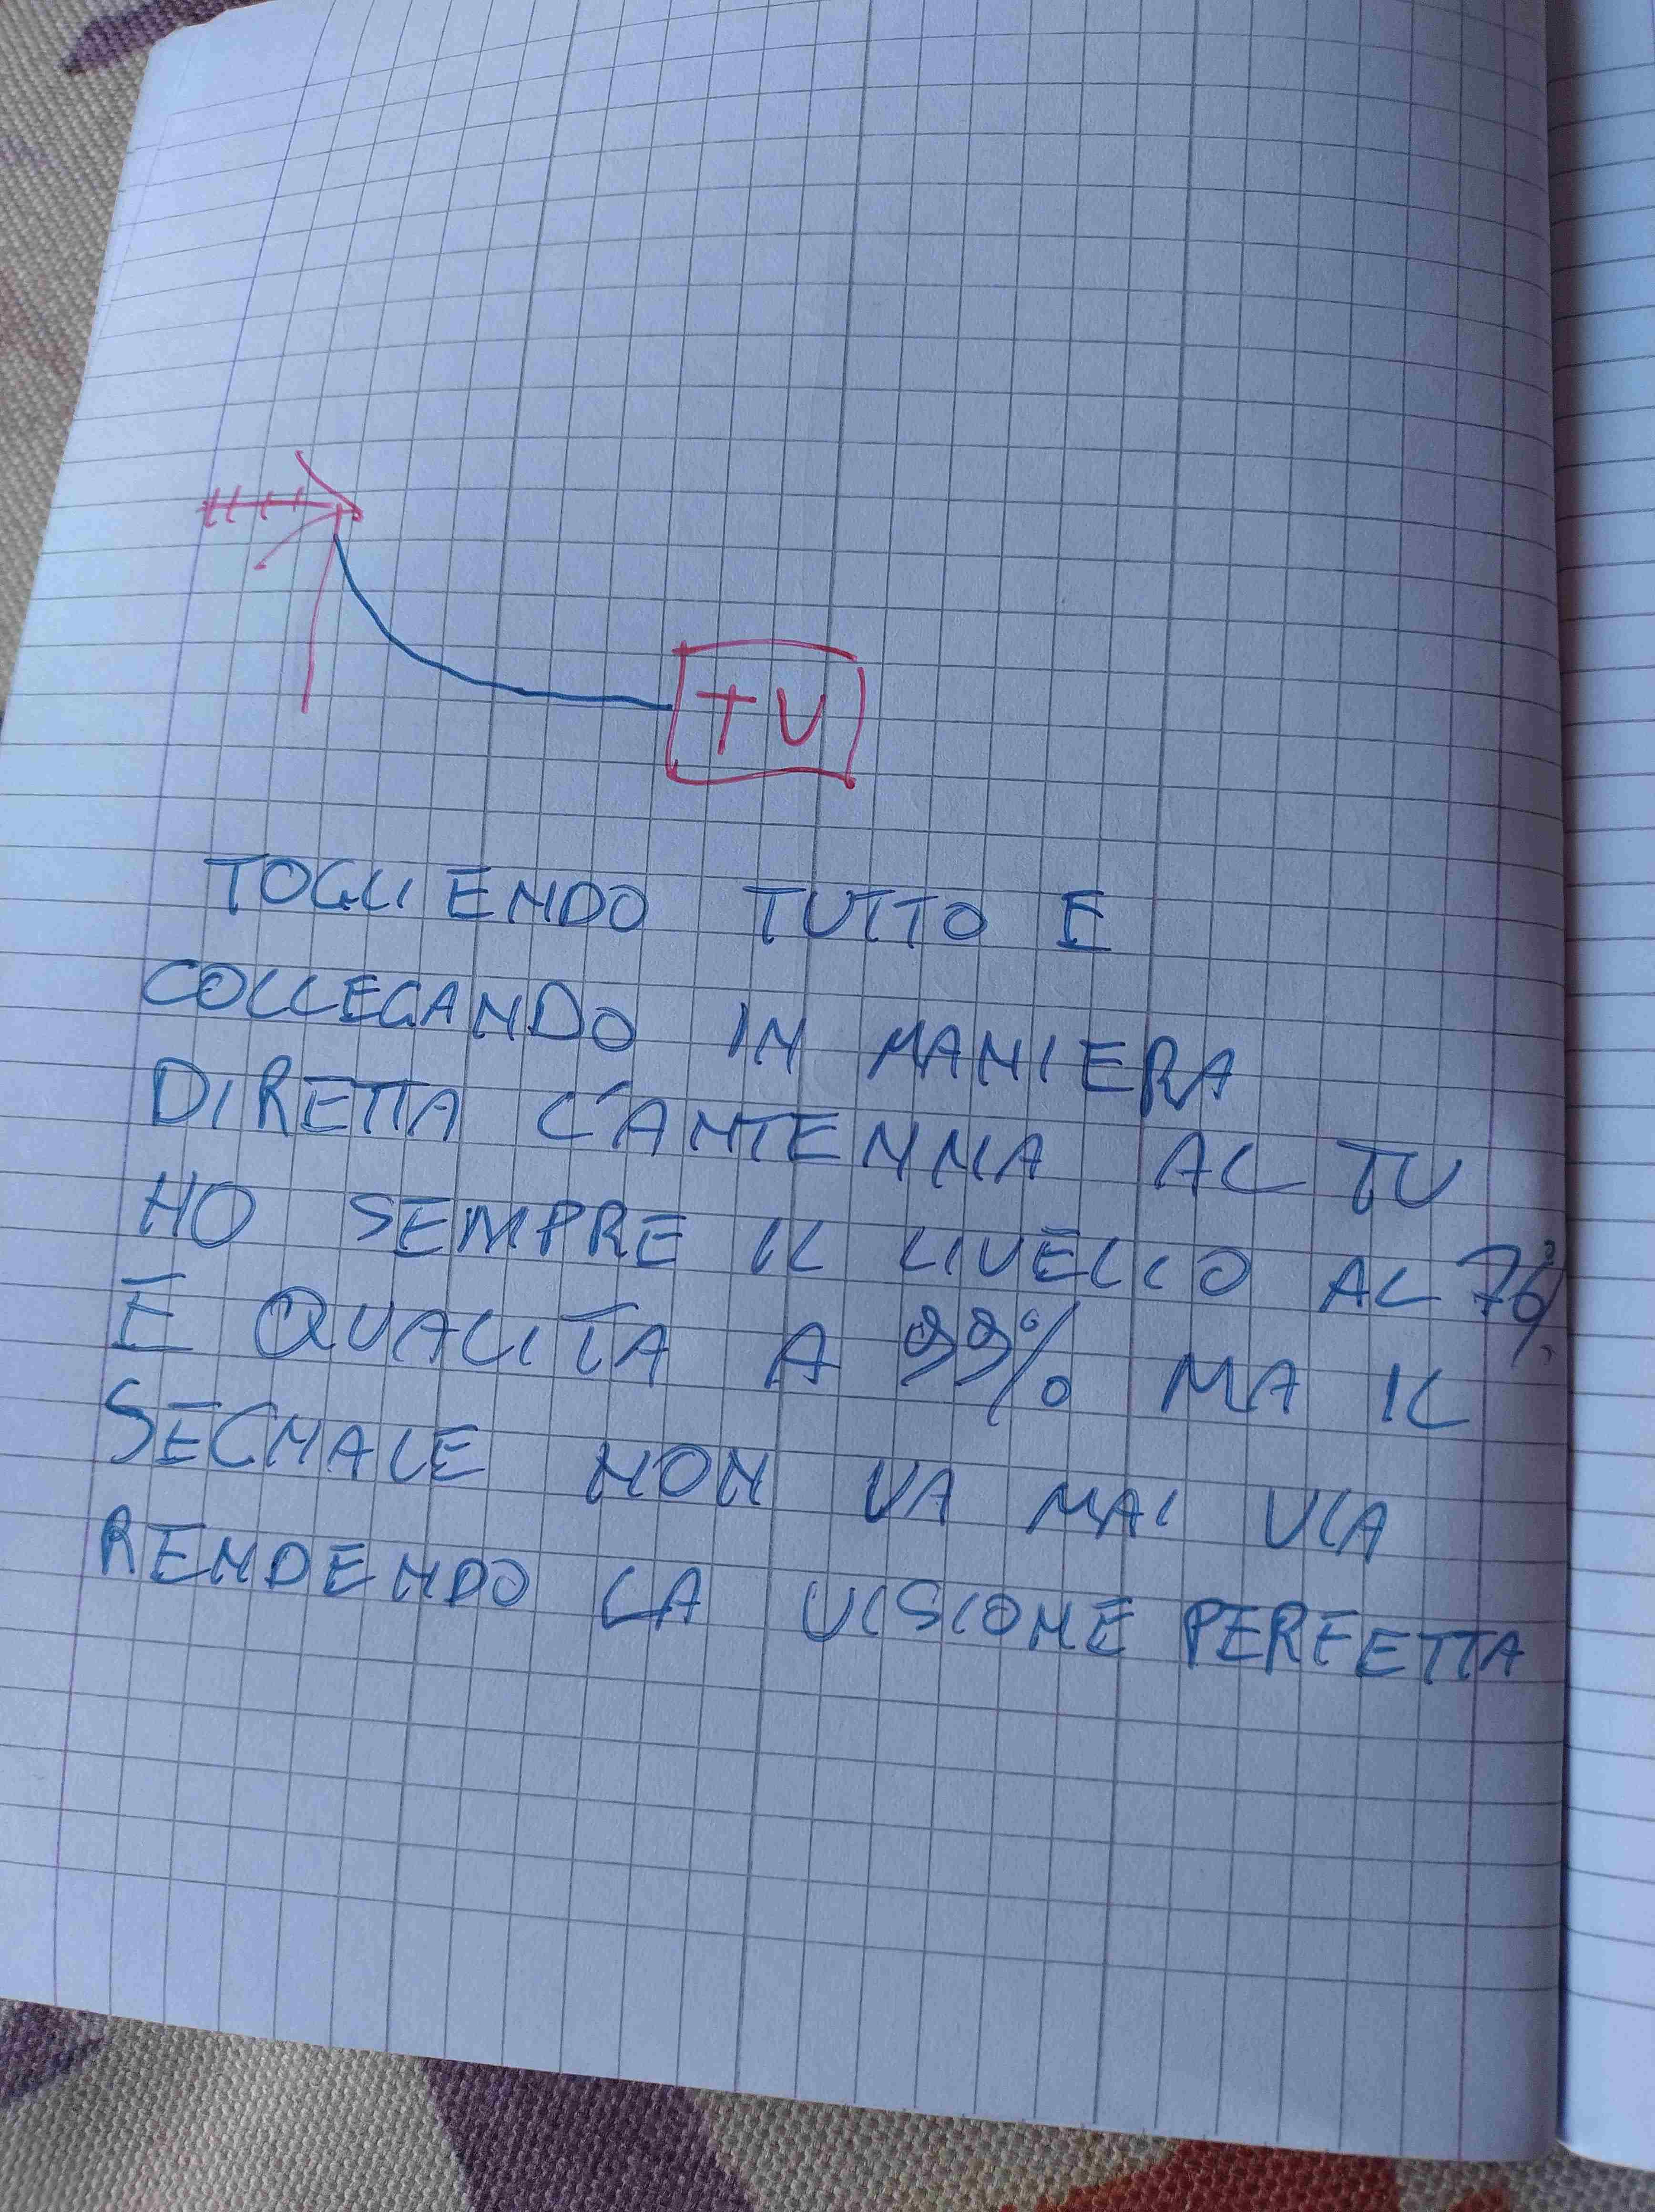 TV
TOGLIENDO TUTTO E
COLLEGANDO IN MANIERA
DIRETTA L'ANTENNA AL TV
HO SEMPRE IL LIVELLO AL 76%
E QUALITA A 99% MA IL
SEGNALE NON VA MAI VIA
RENDENDO LA VISIONE PERFETTA